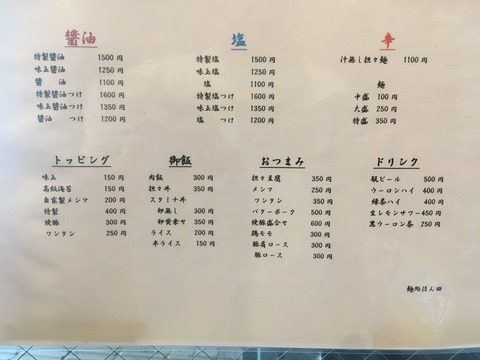 醤油
特製醤油 1500円
味玉醤油 1250円
醤油 1100円
特製醤油つけ 1600円
味玉醤油つけ 1350円
醤油 つけ 1200円
塩
特製塩 1500円
味玉塩 1250円
塩 1100円
特製塩つけ 1600円
味玉塩つけ 1350円
塩 つけ 1200円
辛
汁無し担々麺 1100円
麺
中盛 100円
大盛 250円
特盛 350円
トッピング
味玉 150円
高級海苔 150円
自家製メンマ 200円
特製 400円
焼豚 300円
ワンタン 250円
御飯
肉飯 300円
担々丼 350円
スタミナ丼
卵無し 300円
卵黄乗せ 350円
ライス 200円
半ライス 150円
おつまみ
担々豆腐 350円
メンマ 250円
ワンタン 350円
バターポーク 500円
焼豚盛合せ 600円
鶏モモ 300円
豚肩ロース 300円
豚ロース 300円
ドリンク
瓶ビール 500円
ウーロンハイ 400円
緑茶ハイ 400円
生レモンサワー 450円
黒ウーロン茶 250円
麺処ほん田